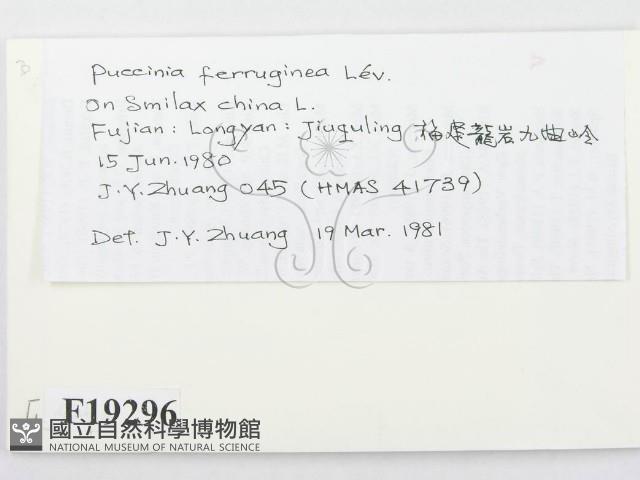 Puccinia ferruginea Lév.
on Smilax china L.
Fujian : Longyan : Jiuquling 福建龍岩九曲岭
15 Jun. 1980
J.Y. Zhuang 045 (HMAS 41739)
Det. J.Y. Zhuang 19 Mar. 1981
F19296
國立自然科學博物館
NATIONAL MUSEUM OF NATURAL SCIENCE